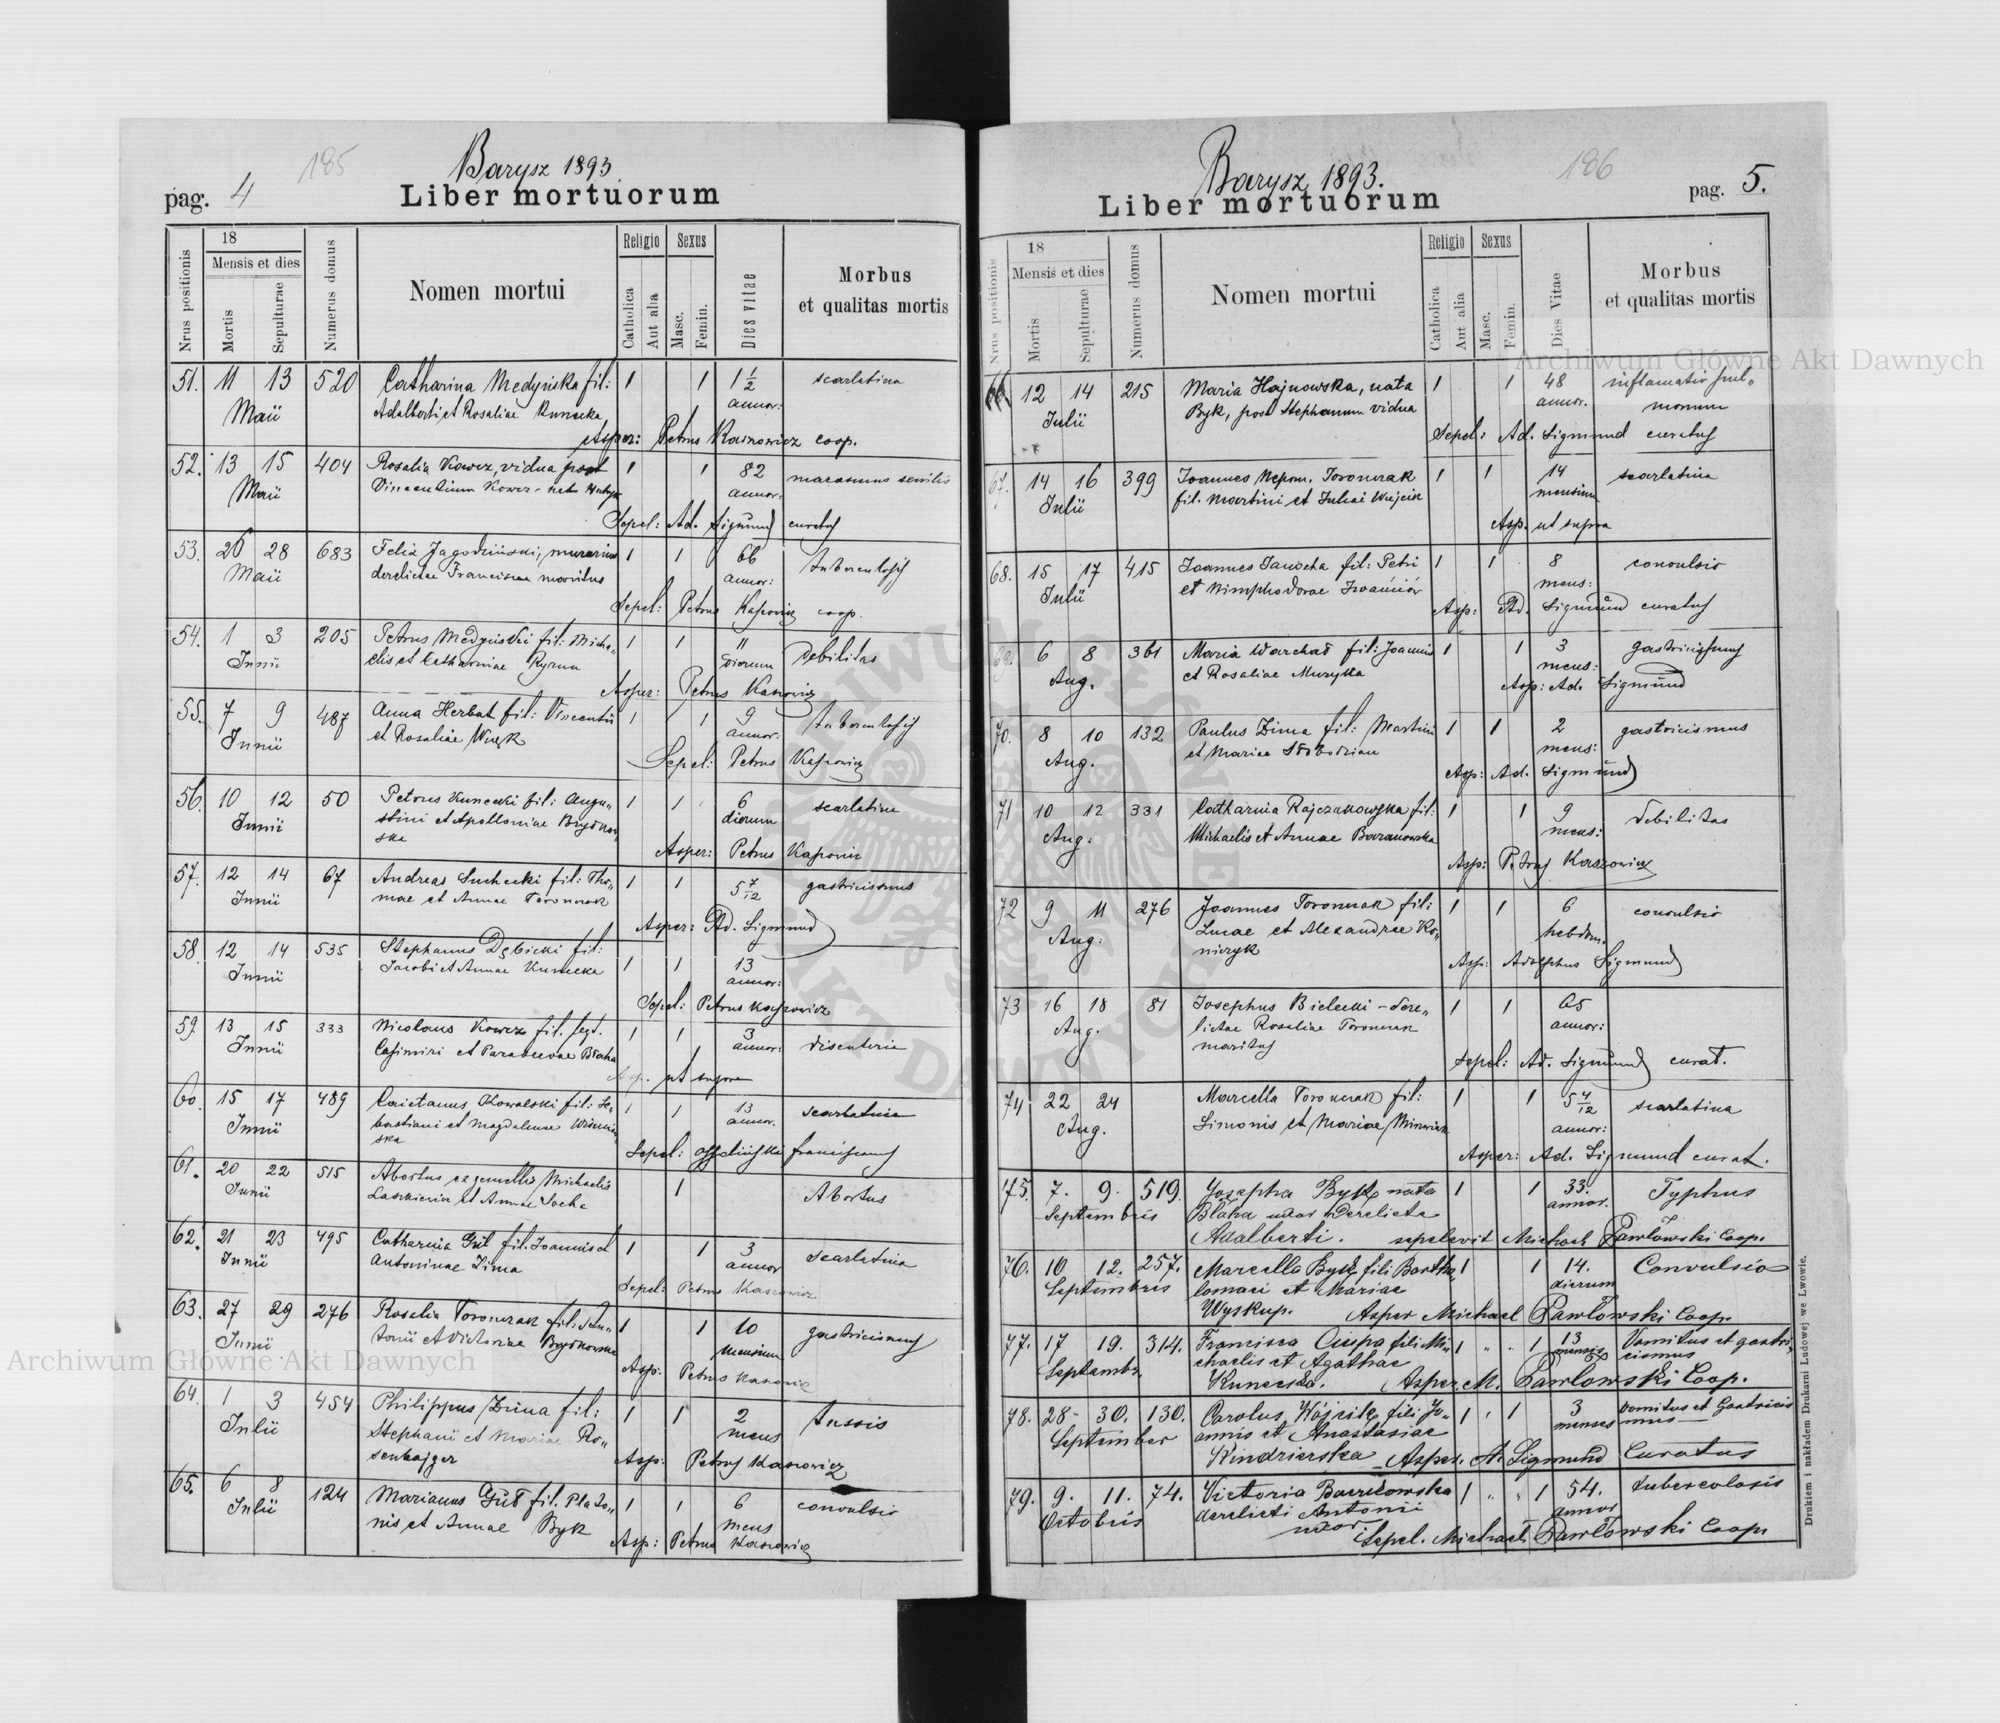 185
Barysz 1893
pag. 4
Liber mortuorum
Nrus positionis
18
Mensis et dies
Mortis
Sepulturae
Numerus domus
Nomen mortui
Religio
Catholica
Aut alia
Sexus
Masc.
Femin.
Dies vitae
Morbus
et qualitas mortis
51. 11 13 520 Catharina Medyńska fil: 1 1 1 1/2 scarlatina
Maii Adalberti et Rosaliae Kunicka annor:
Asper: Petrus Kasnowicz coop.
52. 13 15 404 Rosalia Kowcz, vidua post 1 1 82 marasmus senilis
Maii Vincentium Kowcz annor:
Sepel: Ad. Sigmund curatus
53. 26 28 683 Felix Jagodziński, murarius 1 1 66 tuberculosis
Maii derelictae Franciscae maritus annor:
Sepel: Petrus Kasowicz coop.
54. 1 3 205 Petrus Medyński fil: Micha- 1 1 11 debilitas
Junii elis et Catharinae Ryzna dierum
Asper: Petrus Kasowicz
55. 7 9 487 Anna Herbut fil: Vincentii 1 1 9 tuberculosis
Junii et Rosaliae annor:
Sepel: Petrus Kasowicz
56. 10 12 50 Petrus Kunecki fil: Augu- 1 1 6 scarlatina
Junii stini et Apolloniae Brydkow- dierum
ska
Asper: Petrus Kasowicz
57. 12 14 67 Andreas Suchecki fil: Tho- 1 1 5 7/12 gastricismus
Junii mae et Annae Toronczak
Asper: Ad. Sigmund
58. 12 14 535 Stephanus Dębicki fil: 1 1 13
Junii Jacobi et Annae Kunicka annor:
Sepel: Petrus Kasprowicz
59. 13 15 333 Nicolaus Kowcz fil. legt. 1 1 3 disenteria
Junii Casimiri et Parascevae Błaha annor:
Asp. ut supra
60. 15 17 489 Caietanus Kowalski fil: Se- 1 1 13 scarlatina
Junii bastiani et Magdalenae annor.
ska
Sepel: franciscanus
61. 20 22 515 Abortus ex gemellis Michaelis 1 Abortus
Junii et Annae Socha
62. 21 23 495 Catharina Gut fil. Joannis et 1 1 3 scarlatina
Junii Antoninae Zima annor
Sepel: Petrus Kasowicz
63. 27 29 276 Rosalia Toronczak fil: An- 1 1 10 gastricismus
Junii tonii et Victoriae Brydkowska mensium
Asp: Petrus Kasowicz
64. 1 3 454 Philippus Zima fil: 1 1 2 tussis
Julii Stephani et Mariae Ro- mens
senbajger
Asp: Petrus Kasowicz
65. 6 8 124 Marianus Gut fil. Plato- 1 1 6 convulsio
Julii nis et Annae Byk mens
Asp: Petrus Kasowicz
186
Barysz 1893.
Liber mortuorum
pag. 5.
Nrus positionis
18
Mensis et dies
Mortis
Sepulturae
Numerus domus
Nomen mortui
Religio
Catholica
Aut alia
Sexus
Masc.
Femin.
Dies Vitae
Morbus
et qualitas mortis
66. 12 14 215 Maria Hajnowska, nata 1 1 48 inflamatio pul-
Julii Byk, post Stephanum vidua annor. monum
Sepel: Ad. Sigmund curatus
67. 14 16 399 Joannes Nepom. Toronczak 1 1 14 scarlatina
Julii fil. Martini et Juliae Wujcik mensium
Asp. ut supra
68. 15 17 415 Joannes Janocha fil: Petri 1 1 8 convulsio
Julii et Nimphodorae Iwaniów mens:
Asp: Ad. Sigmund curatus
69. 6 8 361 Maria Warchał fil: Joannis 1 1 3 gastricismus
Aug. et Rosaliae Muzyka mens:
Asp: Ad. Sigmund
70. 8 10 132 Paulus Zima fil: Martini 1 1 2 gastricismus
Aug. et Mariae Słobodzian mens:
Asp: Ad. Sigmund
71 10 12 331 Catharina Rajczakowska fil: 1 1 9 debilitas
Aug: Michaelis et Annae Baranowska mens:
Asp: Petrus Kaszowicz
72 9 11 276 Joannes Toronczak fil: 1 1 6 convulsio
Aug: Lucae et Alexandrae Ko- hebdom.
niczyk
Asp: Adolphus Sigmund
73 16 18 81 Josephus Bielecki - dere- 1 1 65
Aug. lictae Rosaliae Toronczak annor:
maritus
Sepel: Ad. Sigmund curat.
74 22 24 Marcella Toronczak fil: 1 1 5 4/12 scarlatina
Aug. Simonis et Mariae annor:
Asper: Ad. Sigmund curat.
75. 7. 9. 519. Josepha Byk nata 1 1 33. Typhus
Septembris Błaha uxor derelicta annor.
Adalberti. sepelevit Michael Pawłowski Coop.
76. 10 12. 257. Marcella Byk fili Bartho- 1 1 14. Convulsio
Septembris lomaei et Mariae dierum
Wyskup. Asper Michael Pawłowski Coop.
77. 17 19. 314. Francisca Ciupa fili Mi- 1 " " 1 13 Vomitus et gastri-
Septembr. chaelis et Agathae mensis cismus
Kunecka. Asper. M. Pawłowski Coop.
78. 28- 30. 130. Carolus Wójcik fili Jo- 1 " 1 3 Vomitus et Gastricis
September annis et Anastasiae menses mus
Kindzierska Asper. A. Sigmund Curatus
79. 9. 11. 74. Victoria Baryłowska 1 " " 1 54. tuberculosis
Octobris derelicti Antonii annor
uxor
Sepel. Michael Pawłowski Coop.
Drukiem i nakładem Drukarni Ludowej we Lwowie.
Archiwum Główne Akt Dawnych
Archiwum Główne Akt Dawnych